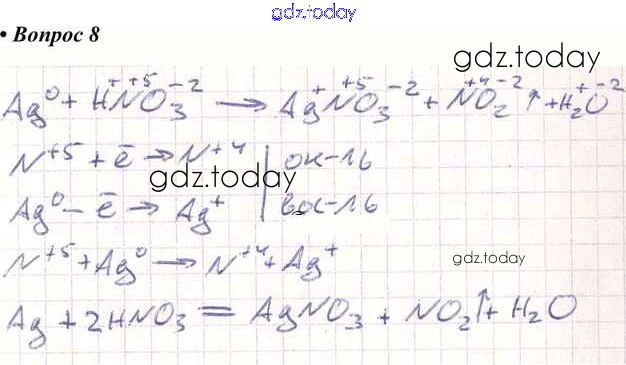 gdz.today
• Вопрос 8
gdz.today
Ag⁰ + H⁺N⁺⁵O₃⁻² → Ag⁺N⁺⁵O₃⁻² + N⁺⁴O₂⁻²↑ + H₂⁺O⁻²
N⁺⁵ + ē → N⁺⁴ | ок-1б
gdz.today
Ag⁰ - ē → Ag⁺ | вос-1б
N⁺⁵ + Ag⁰ → N⁺⁴ + Ag⁺
gdz.today
Ag + 2HNO₃ = AgNO₃ + NO₂↑ + H₂O